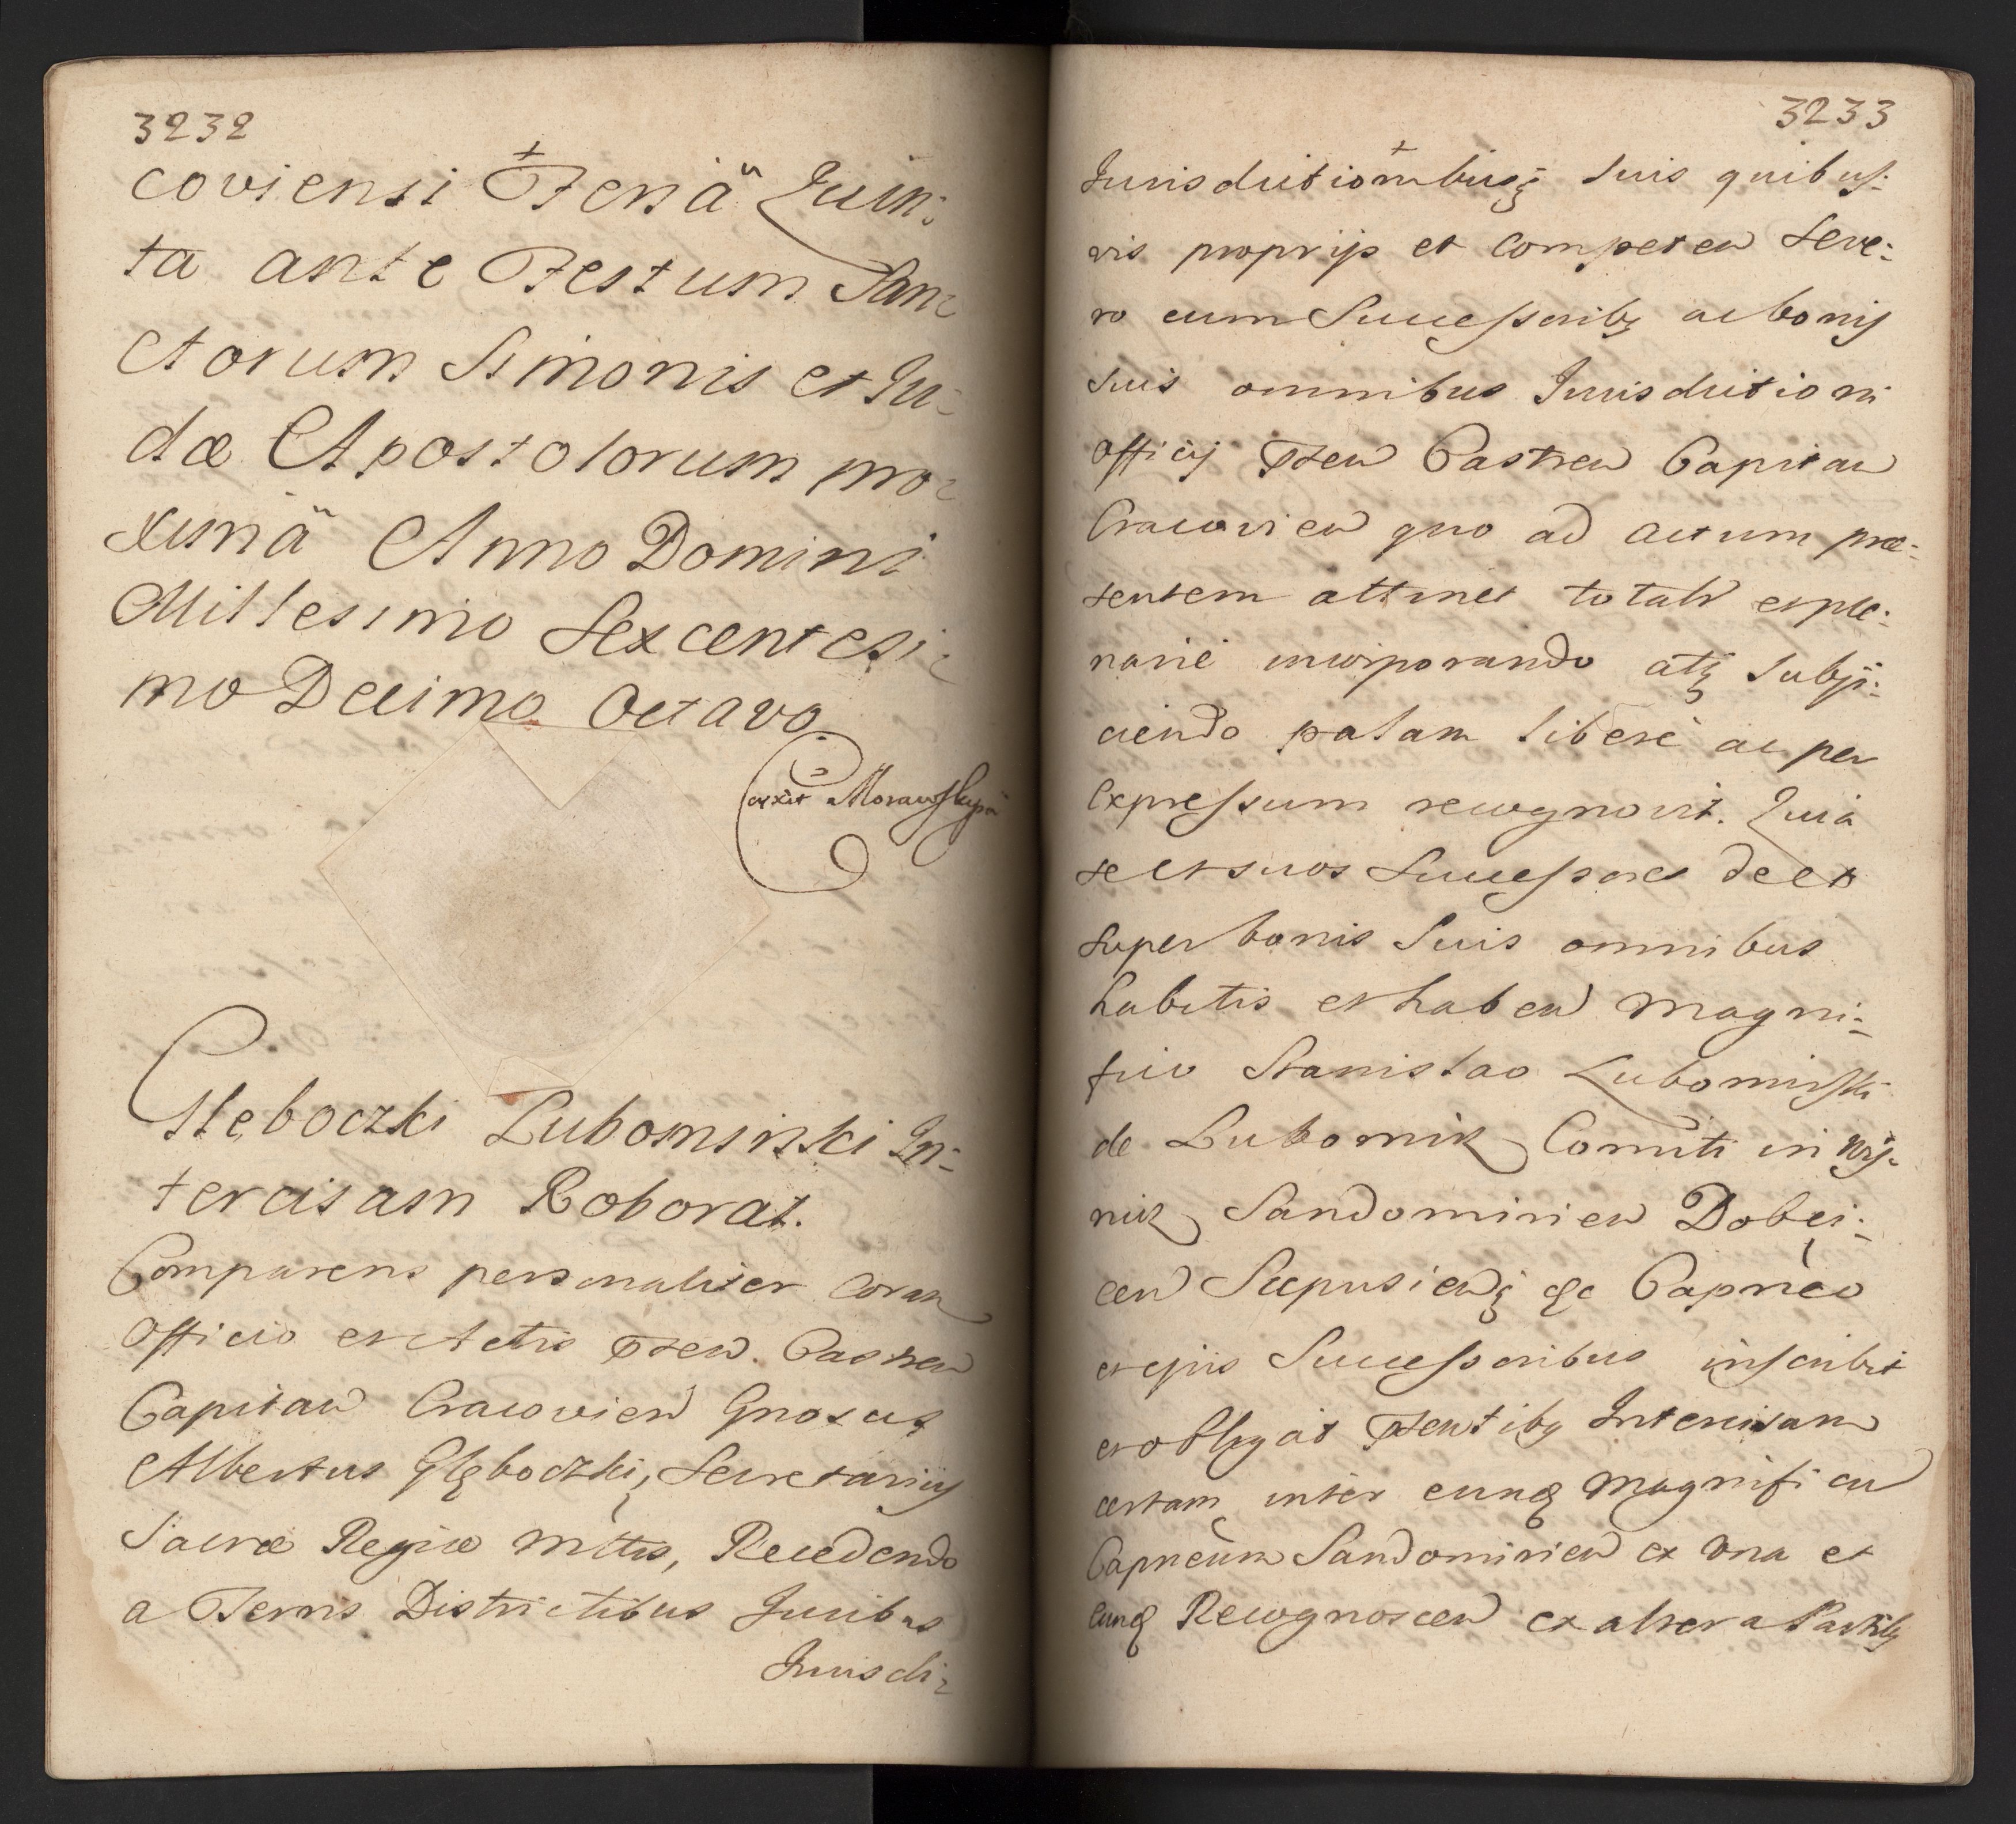 3232
coviensi Feriä Quin:
ta ante Festum San-
ctorum Simonis et Ju-
dæ Apostolorum pro-
ximä Anno Domini
Millesimo Sexcentesi-
mo Decimo Octavo
Głęboczki Lubomirski In-
tercisam Roborat.
Comparens personaliter coram
Officio et Actis pten. Castren
Capitan Cracovien Gnosus
Albertus Głęboczki, Secretarius
Sacræ Regiæ Mttis, Recedendo
a Terris Districtibus Juribus
Jurisdi-
3233
Jurisdictionibusq suis quibus-
vis proprijs et competen seve-
ro cum Successoribq ac bonis
suis omnibus Jurisdictioni
Officij pten Castren Capitan
Cracovien quo ad actum præ-
sentem attinet totalr et ple-
narié incorporando atq subij-
ciendo palam liberé ac per
Expressum recognovit. Quia
se et suos Successores de et
super bonis suis omnibus
habitis et haben Magni-
fico Stanislao Lubomirski
de Lubomirz Comiti in Wiś-
nicz Sandomirien Dobci-
cen Scepusienq &c Capneo
et ejus Successoribus inscribit
et obligat ptentibq Intercisam
certam inter eunq Magnificu
Capneum Sandomirien ex una et
eunq Recognoscen ex altera Partibq